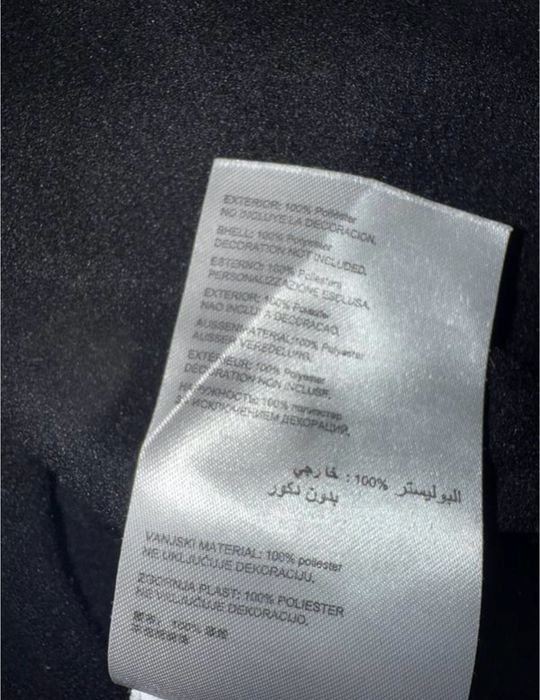 EXTERIOR: 100% Poliéster
NO INCLUYE LA DECORACION.
SHELL: 100% Polyester
DECORATION NOT INCLUDED.
ESTERNO: 100% Poliestere
PERSONALIZZAZIONE ESCLUSA.
EXTERIOR: 100% Poliéster
NAO INCLUI A DECORACAO.
AUSSENMATERIAL:100% Polyester
AUSSER VEREDELUNG.
EXTÉRIEUR: 100% Polyester
DÉCORATION NON INCLUSE.
НАРУЖНОСТЬ: 100% полиэстер
ЗА ИСКЛЮЧЕНИЕМ ДЕКОРАЦИЙ.
البوليستر 100% : خارجي
بدون دكور
VANJSKI MATERIAL: 100% poliester
NE UKLJUČUJE DEKORACIJU.
ZGORNJA PLAST: 100% POLIESTER
NE VKLJUČUJE DEKORACIJO.
100%